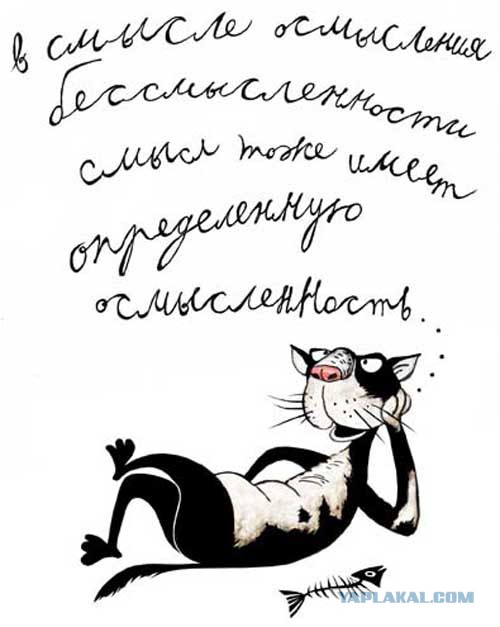 в смысле осмысления
бессмысленности
смысл тоже имеет
определенную
осмысленность...
YAPLAKAL.COM